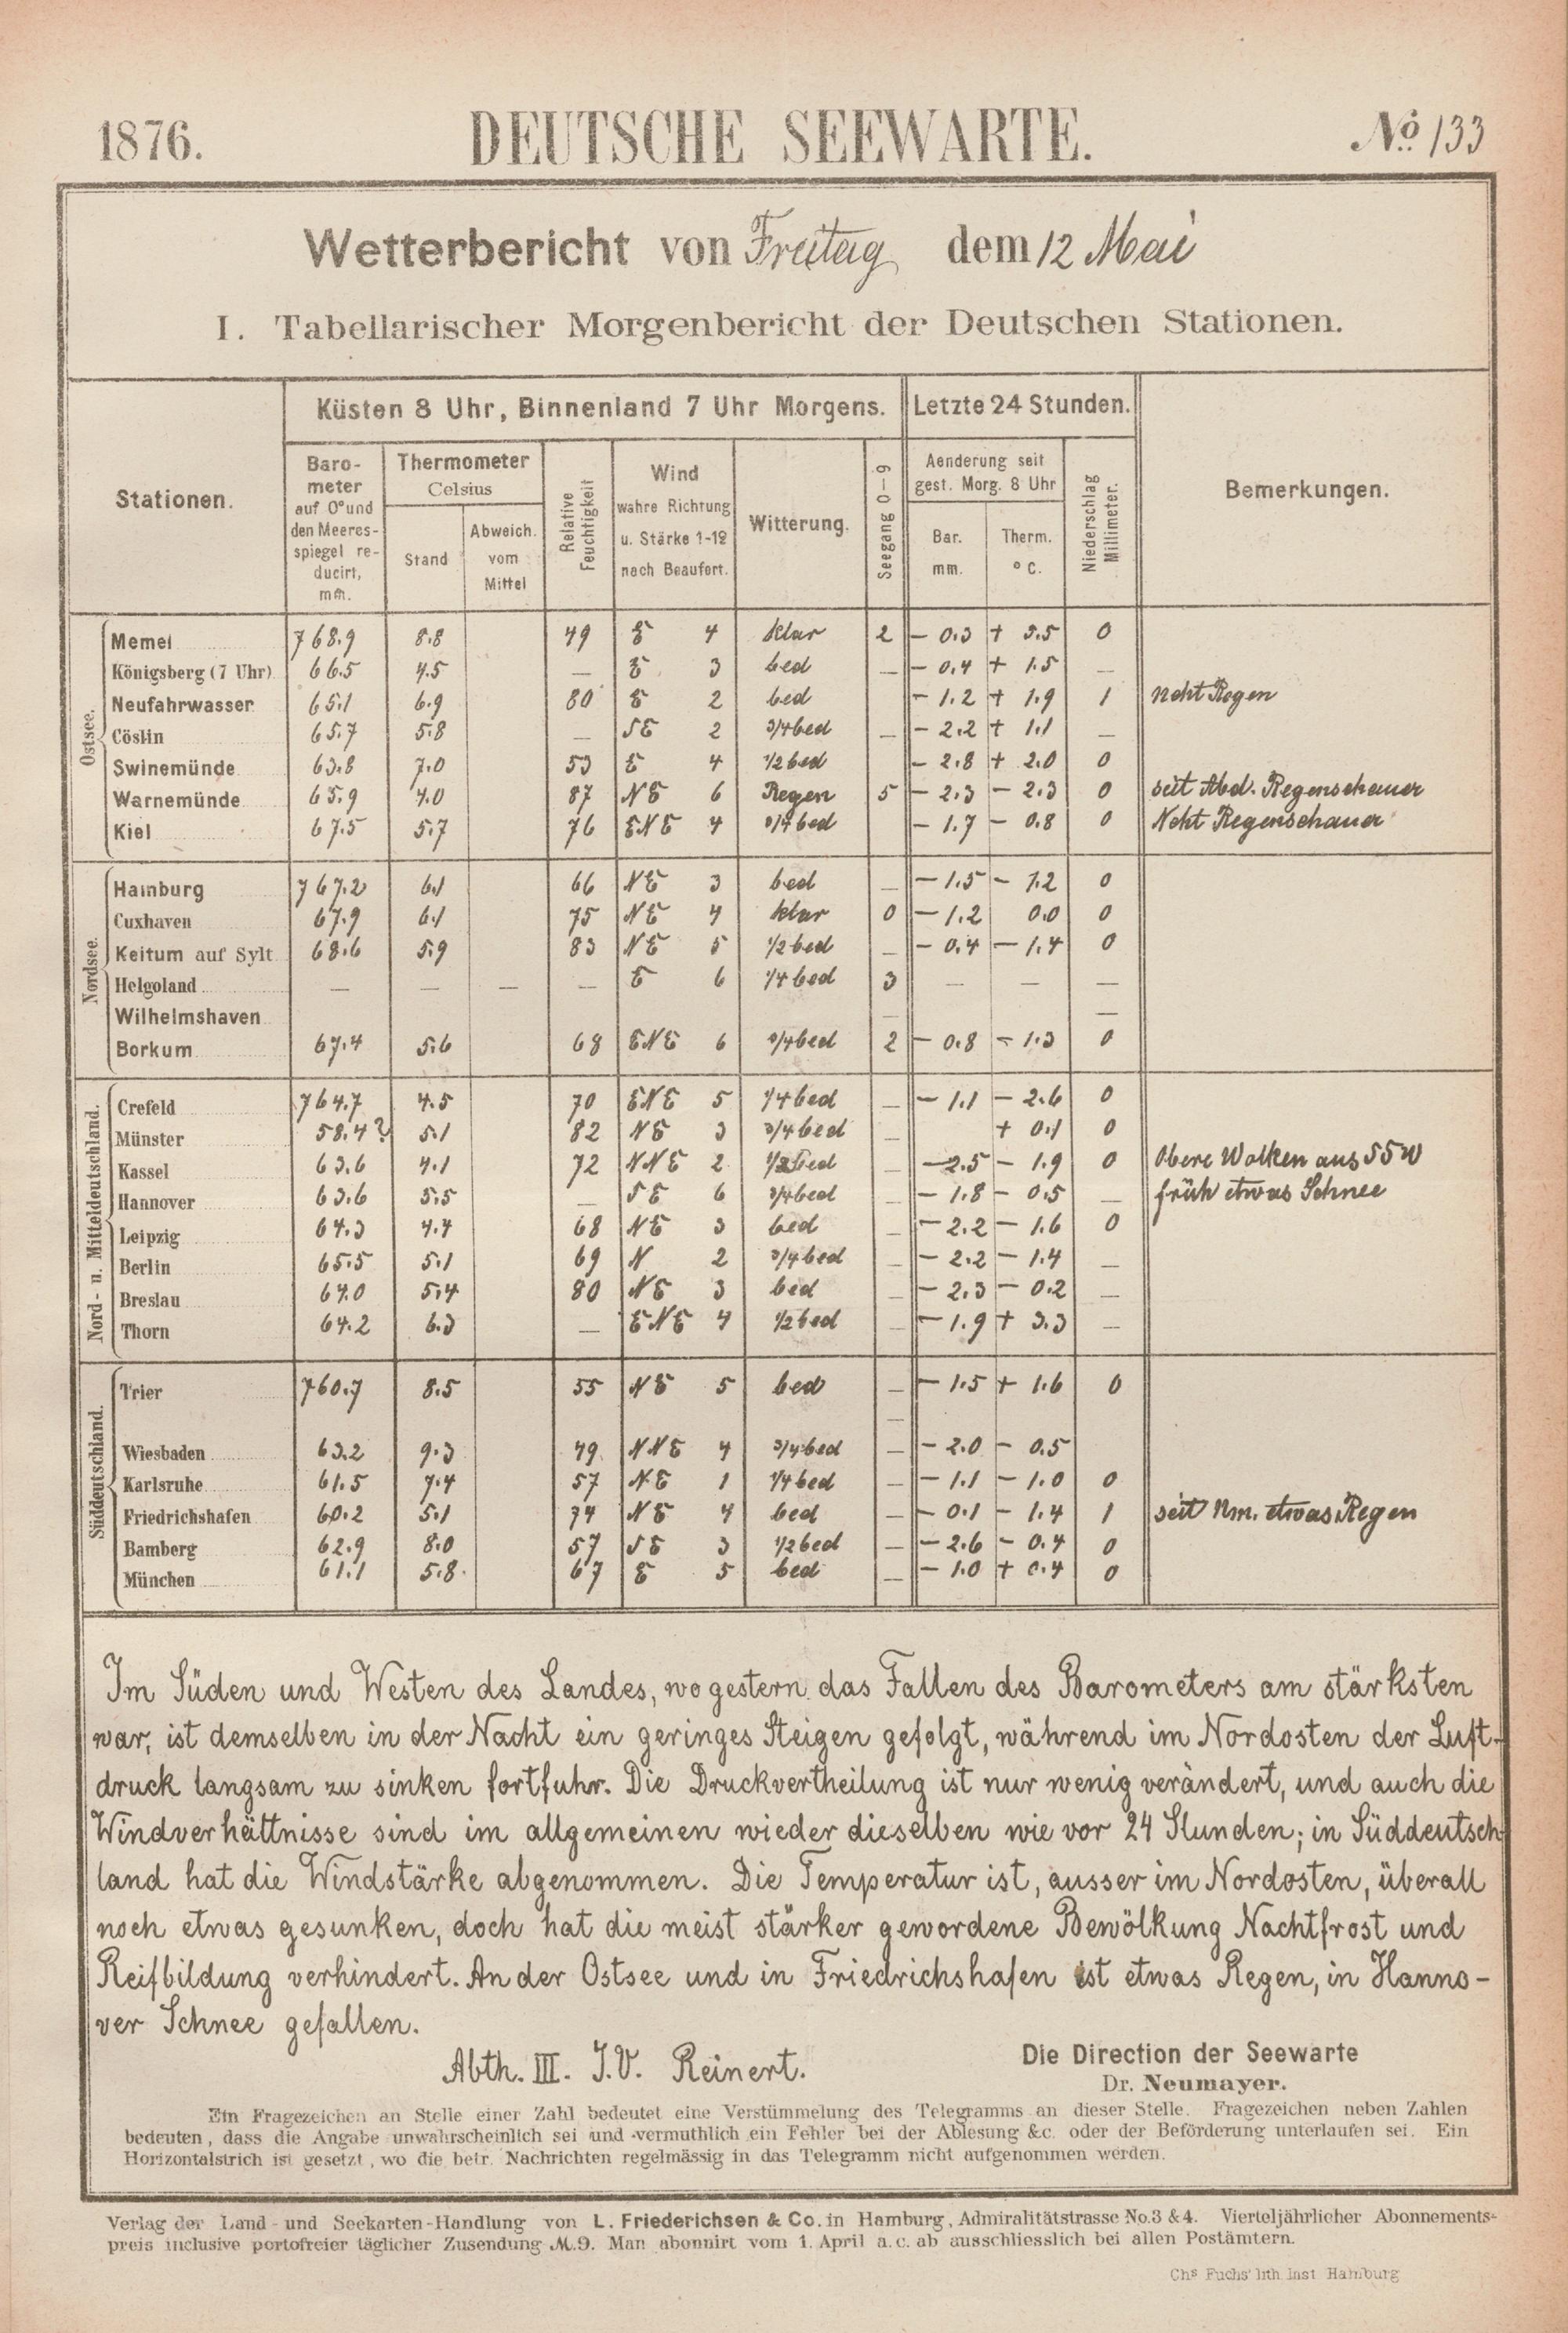 1876. DEUTSCHE SEEWARTE. No. 133
Wetterbericht von Freitag dem 12 Mai
I. Tabellarischer Morgenbericht der Deutschen Stationen.
Stationen. Küsten 8 Uhr, Binnenland 7 Uhr Morgens. Letzte 24 Stunden. Bemerkungen.
Baro-meter auf 0° und den Meeres-spiegel re-ducirt, mm. Thermometer Celsius Stand Abweich. vom Mittel Relative Feuchtigkeit Wind wahre Richtung u. Stärke 1-12 nach Beaufort. Witterung. Seegang 0-9 Aenderung seit gest. Morg. 8 Uhr Bar. mm. Therm. ° C. Niederschlag Millimeter.
Ostsee.
Memel 768.9 8.8 49 E 4 klar 2 - 0.3 + 3.5 0
Königsberg (7 Uhr) 66.5 4.5 — E 3 bed — - 0.4 + 1.5 —
Neufahrwasser 65.1 6.9 80 E 2 bed - 1.2 + 1.9 1 ncht Regen
Cöslin 65.7 5.8 — SE 2 3/4 bed — - 2.2 + 1.1 —
Swinemünde 63.8 7.0 53 E 4 1/2 bed - 2.8 + 2.0 0
Warnemünde 65.9 4.0 87 NE 6 Regen 5 - 2.3 - 2.3 0 seit Abd. Regenschauer
Kiel 67.5 5.7 76 ENE 4 3/4 bed - 1.7 - 0.8 0 Ncht Regenschauer
Nordsee.
Hamburg 767.2 6.1 66 NE 3 bed — - 1.5 - 1.2 0
Cuxhaven 67.9 6.1 75 NE 4 klar 0 - 1.2 0.0 0
Keitum auf Sylt 68.6 5.9 83 NE 5 1/2 bed — - 0.4 - 1.4 0
Helgoland — — — — E 6 1/4 bed 3 — — —
Wilhelmshaven — —
Borkum 67.4 5.6 68 ENE 6 3/4 bed 2 - 0.8 - 1.3 0
Nord- u. Mitteldeutschland.
Crefeld 764.7 4.5 70 ENE 5 1/4 bed — - 1.1 - 2.6 0
Münster 58.4? 5.1 82 NE 3 3/4 bed — + 0.1 0
Kassel 63.6 4.1 72 NNE 2 1/2 bed — - 2.5 - 1.9 0 Obere Wolken aus SSW
Hannover 63.6 5.5 — SE 6 3/4 bed — - 1.8 - 0.5 — früh etwas Schnee
Leipzig 64.3 4.4 68 NE 3 bed — - 2.2 - 1.6 0
Berlin 65.5 5.1 69 N 2 3/4 bed — - 2.2 - 1.4 —
Breslau 64.0 5.4 80 NE 3 bed — - 2.3 - 0.2 —
Thorn 64.2 6.3 — ENE 4 1/2 bed — - 1.9 + 3.3 —
Süddeutschland.
Trier 760.7 8.5 55 NE 5 bed — - 1.5 + 1.6 0
—
Wiesbaden 63.2 9.3 49 NNE 4 3/4 bed — - 2.0 - 0.5
Karlsruhe 61.5 7.4 57 NE 1 1/4 bed — - 1.1 - 1.0 0
Friedrichshafen 60.2 5.1 74 NE 4 bed — - 0.1 - 1.4 1 seit Nm. etwas Regen
Bamberg 62.9 8.0 57 SE 3 1/2 bed — - 2.6 - 0.4 0
München 61.1 5.8 67 E 5 bed — - 1.0 + 0.4 0
Im Süden und Westen des Landes, wo gestern das Fallen des Barometers am stärksten
war, ist demselben in der Nacht ein geringes Steigen gefolgt, während im Nordosten der Luft-
druck langsam zu sinken fortfuhr. Die Druckvertheilung ist nur wenig verändert, und auch die
Windverhältnisse sind im allgemeinen wieder dieselben wie vor 24 Stunden; in Süddeutsch-
land hat die Windstärke abgenommen. Die Temperatur ist, ausser im Nordosten, überall
noch etwas gesunken, doch hat die meist stärker gewordene Bewölkung Nachtfrost und
Reifbildung verhindert. An der Ostsee und in Friedrichshafen ist etwas Regen, in Hanno-
ver Schnee gefallen.
Abth. III. I.V. Reinert.
Die Direction der Seewarte
Dr. Neumayer.
Ein Fragezeichen an Stelle einer Zahl bedeutet eine Verstümmelung des Telegramms an dieser Stelle. Fragezeichen neben Zahlen
bedeuten, dass die Angabe unwahrscheinlich sei und vermuthlich ein Fehler bei der Ablesung &c. oder der Beförderung unterlaufen sei. Ein
Horizontalstrich ist gesetzt, wo die betr. Nachrichten regelmässig in das Telegramm nicht aufgenommen werden.
Verlag der Land- und Seekarten-Handlung von L. Friederichsen & Co. in Hamburg, Admiralitätstrasse No. 3 & 4. Vierteljährlicher Abonnements-
preis inclusive portofreier täglicher Zusendung M. 9. Man abonnirt vom 1. April a. c. ab ausschliesslich bei allen Postämtern.
Chs Fuchs' lith. Inst Hamburg